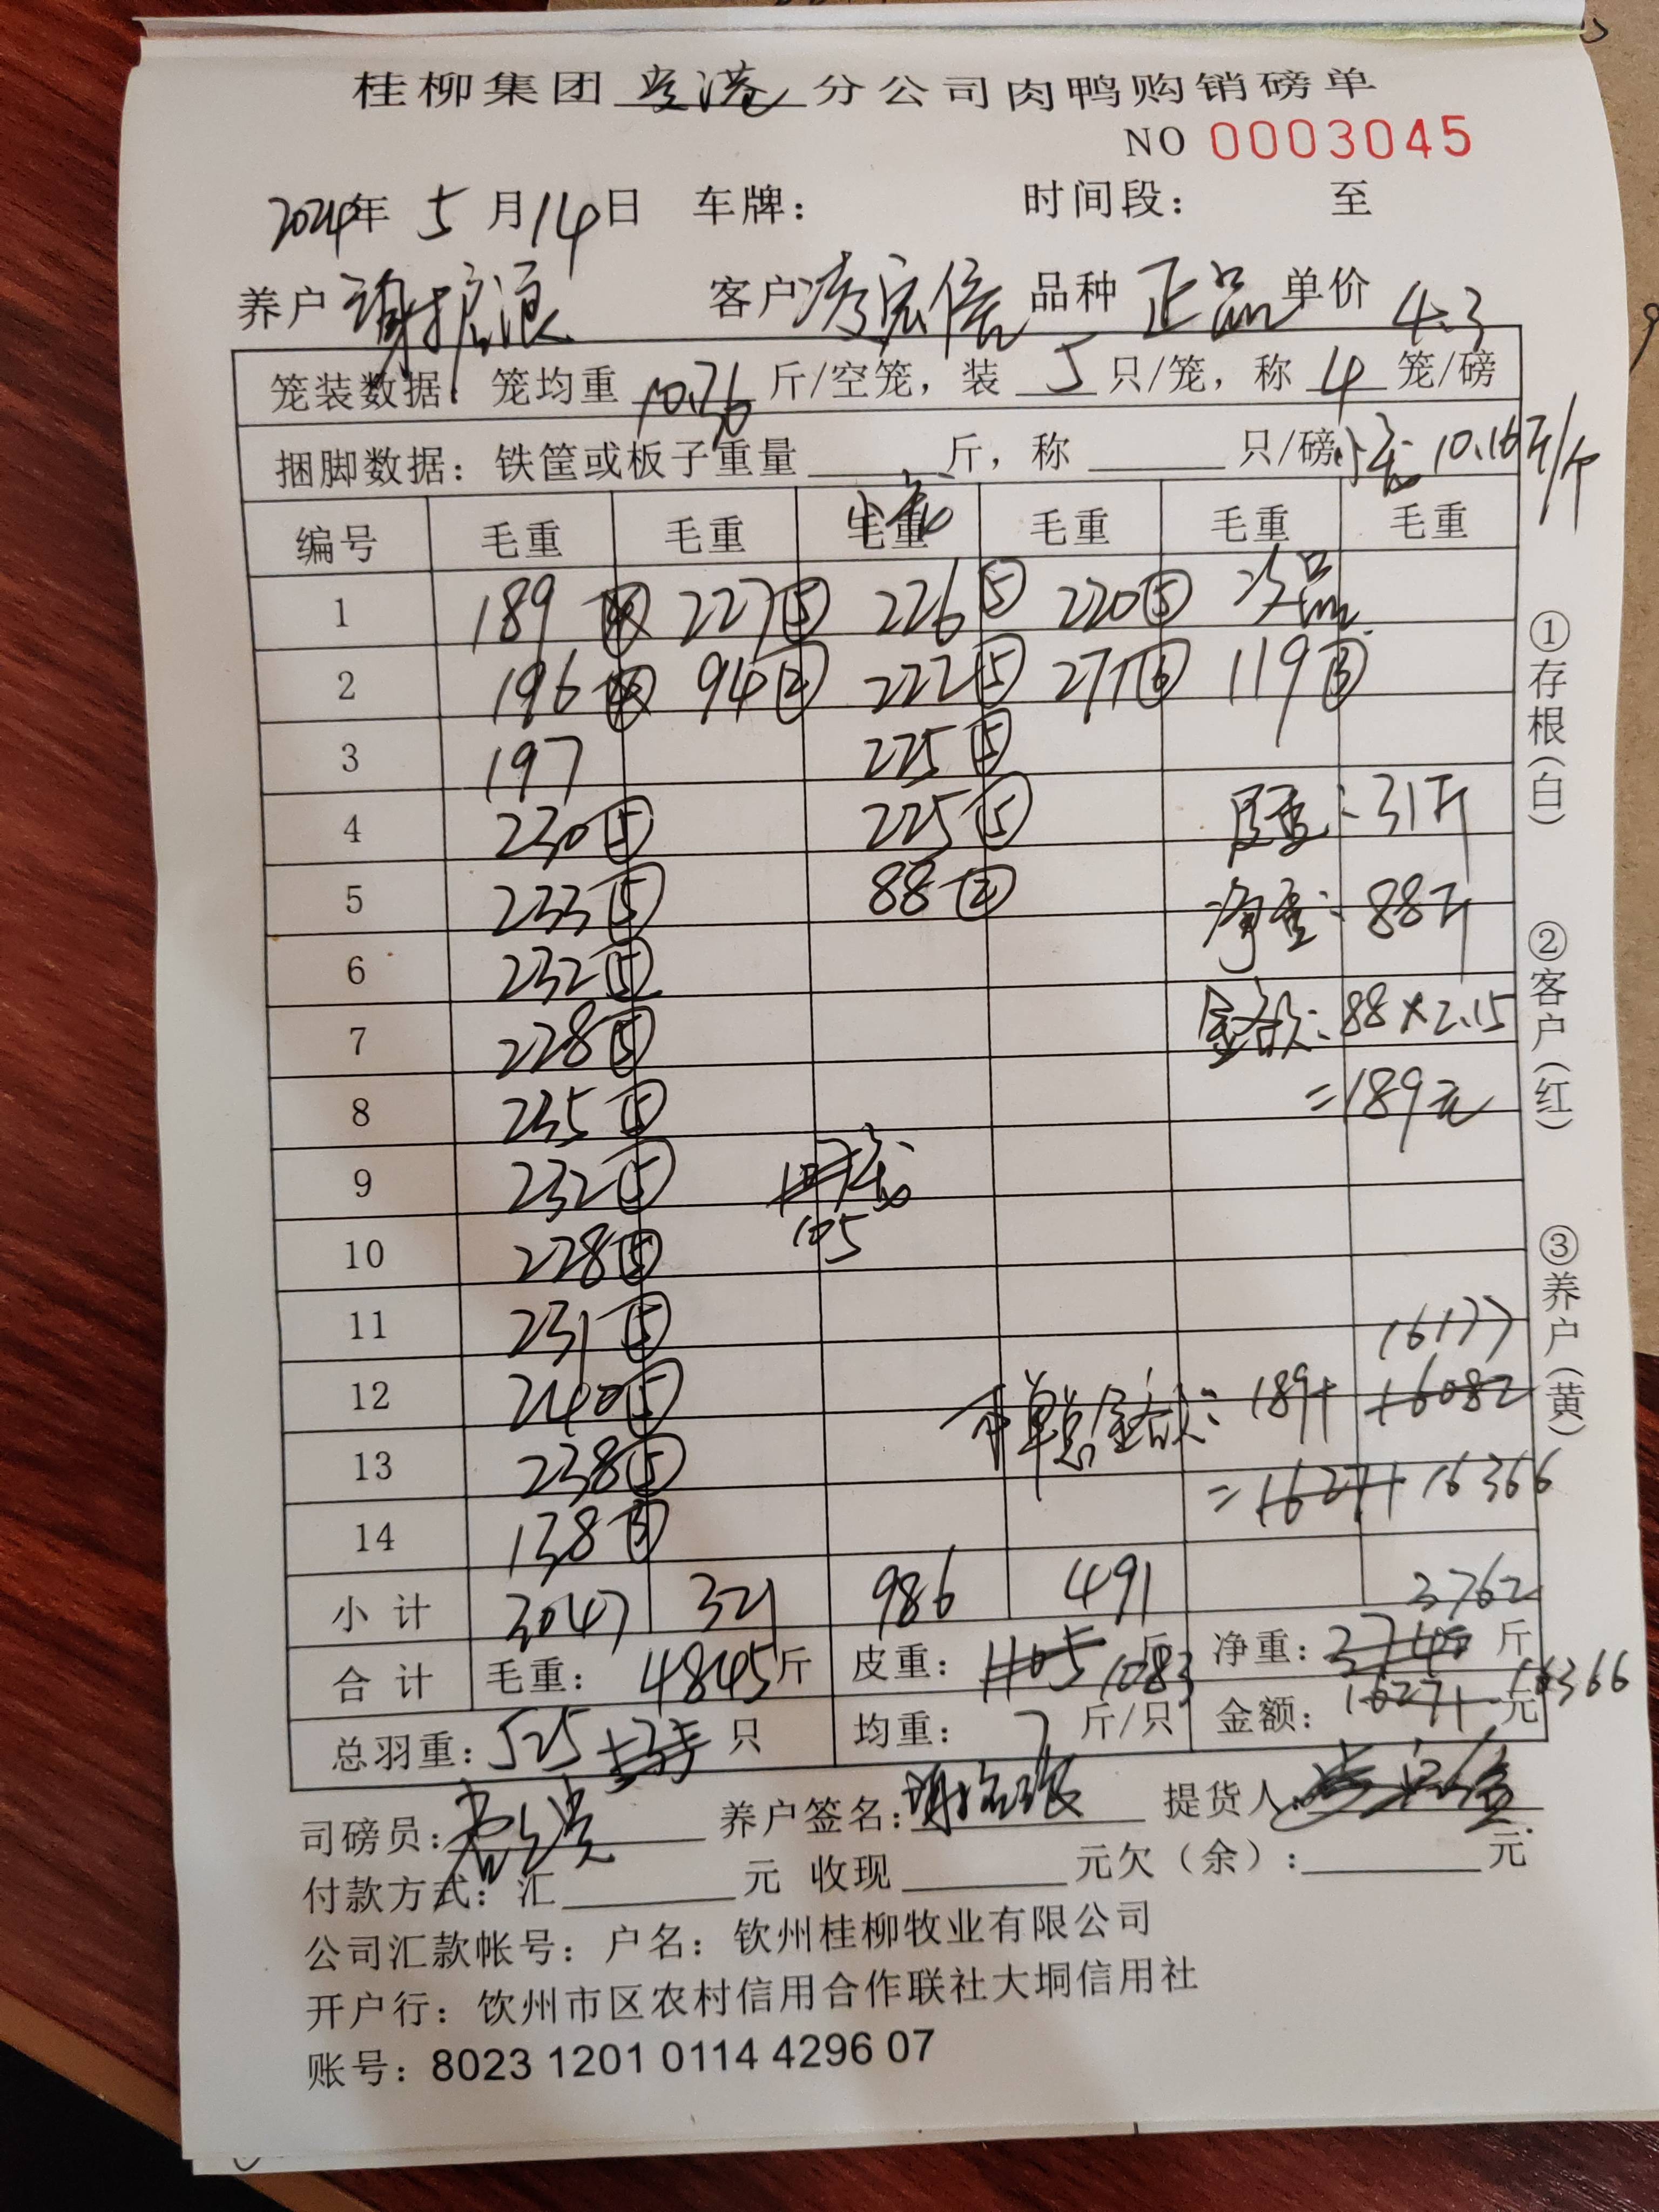 桂柳集团 贵港 分公司肉鸭购销磅单
NO 0003045
2024年 5 月 14 日 车牌： 时间段： 至
养户 谢 客户 李宏信 品种 正品 单价 4.3
笼装数据：笼均重 10.36 斤/空笼，装 5 只/笼，称 4 笼/磅
捆脚数据：铁筐或板子重量 斤，称 只/磅 10.16斤/个
编号 毛重 毛重 毛重 毛重 毛重 毛重
1 189 227⑤ 226⑤ 220⑤ 次品
2 196 94② 222⑤ 271⑥ 119③
3 197 225⑤
4 230⑤ 225⑤ 皮重：31斤
5 233⑤ 88② 净重：88斤
6 232⑤
7 228⑤ 金额：88×2.15
8 235⑤ =189元
9 232⑤
10 228⑤ 105
11 231⑤ 16177
12 240⑤ 本单总金额：189+ 16082
13 238⑤ =16271 16366
14 138③
小计 3047 321 986 491 3762
合计 毛重： 4845斤 皮重： 1105 斤 1083 净重： 3740 斤
总羽重：525 只 均重： 7 斤/只 金额： 16271 元 16366
司磅员： 养户签名： 提货人：
付款方式：汇 元 收现 元欠（余）： 元
公司汇款帐号：户名：钦州桂柳牧业有限公司
开户行：钦州市区农村信用合作联社大垌信用社
账号：8023 1201 0114 4296 07
①存根（白）
②客户（红）
③养户（黄）